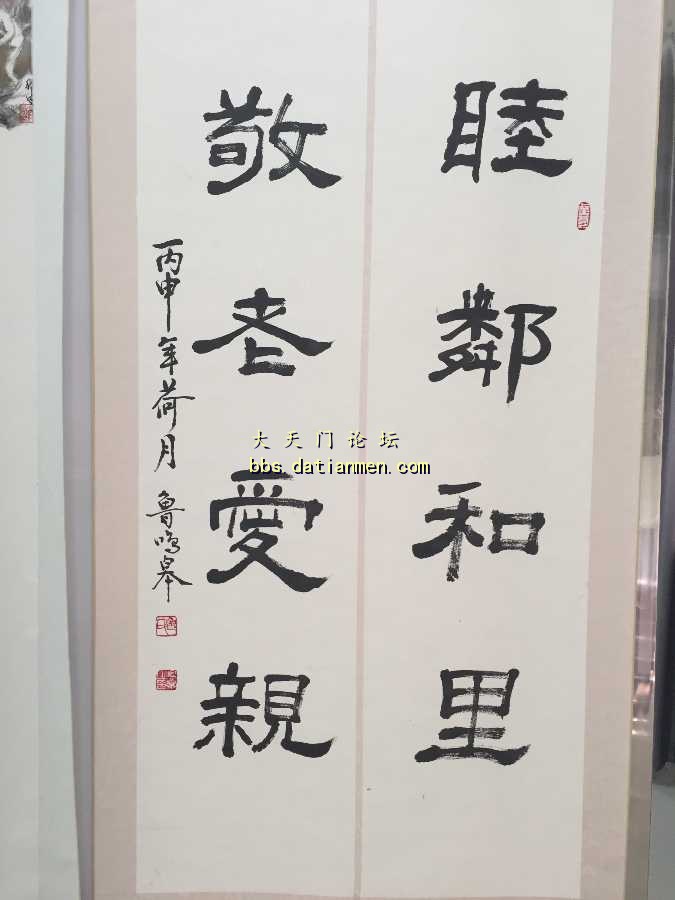 睦鄰和里
敬老愛親
丙申年荷月 魯鳴皋
大天门论坛
bbs.datianmen.com